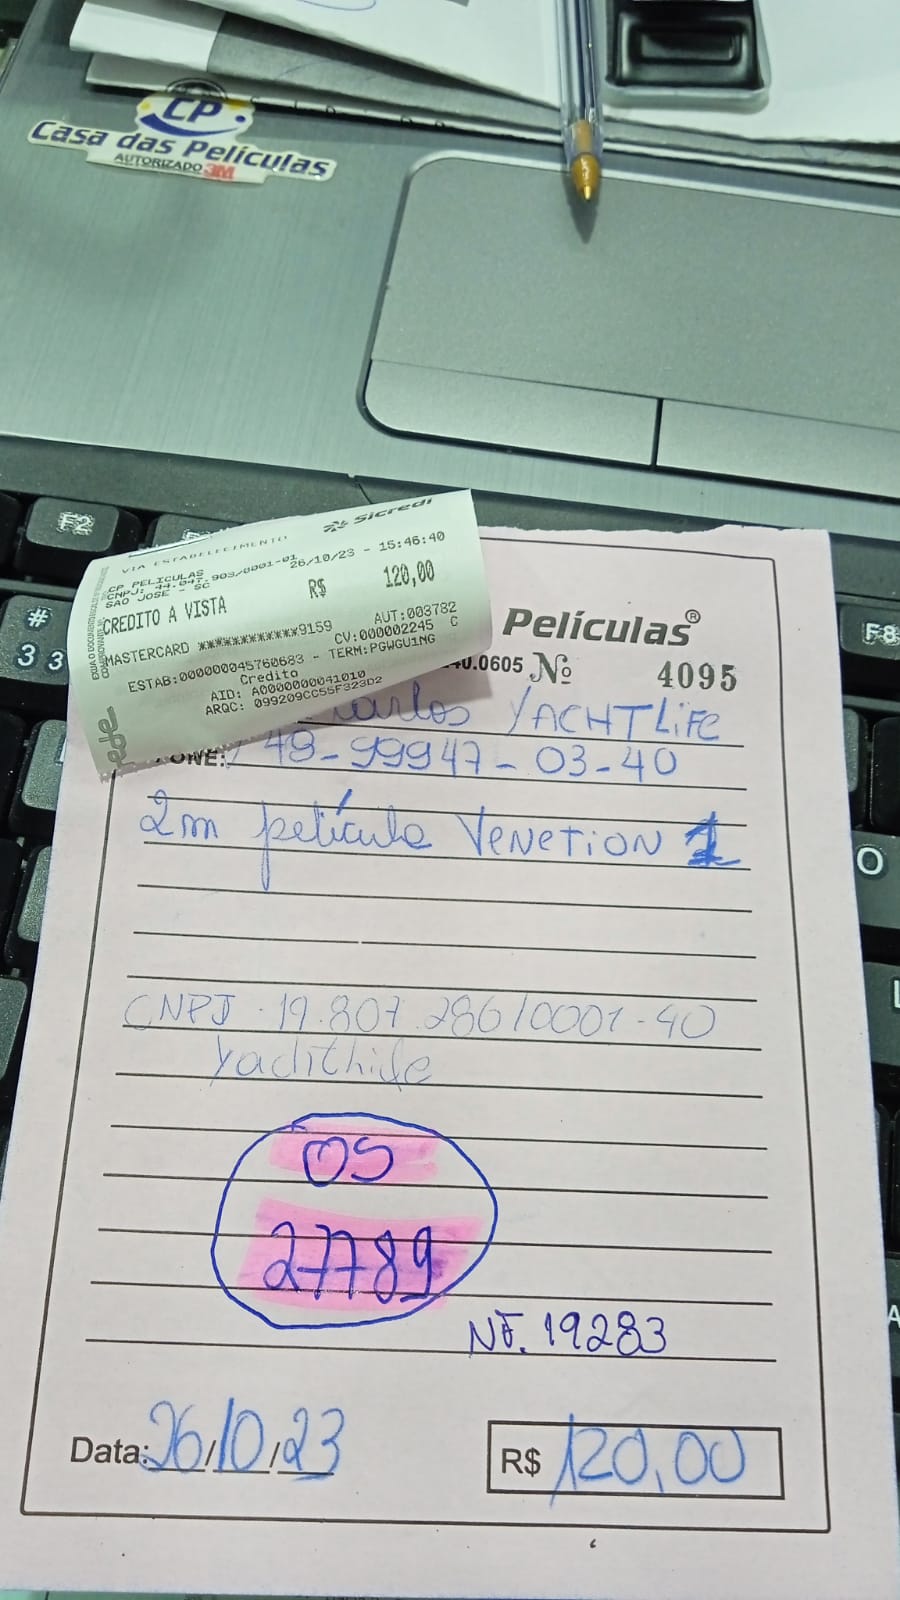 CP
Casa das Películas
AUTORIZADO 3M
F2
#
3 3
F8
O
VIA ESTABELECIMENTO
Sicredi
CP PELICULAS
CNPJ: 44.047.903/0001-01
SAO JOSE - SC
26/10/23 - 15:46:40
CREDITO A VISTA R$ 120,00
MASTERCARD ************9159 AUT:003782
CV:000002245 C
ESTAB:000000045760683 - TERM:PGWGU1NG
Credito
AID: A0000000041010
ARQC: 099209CC55F323D2
rede
Películas®
40.0605 Nº 4095
Carlos YACHTLIFE
FONE: 49-99947-03-40
2m película VENETION 1
CNPJ. 19.807.286/0001-40
Yachtlife
OS
27789
NF. 19283
Data: 26/10/23
R$ 120,00